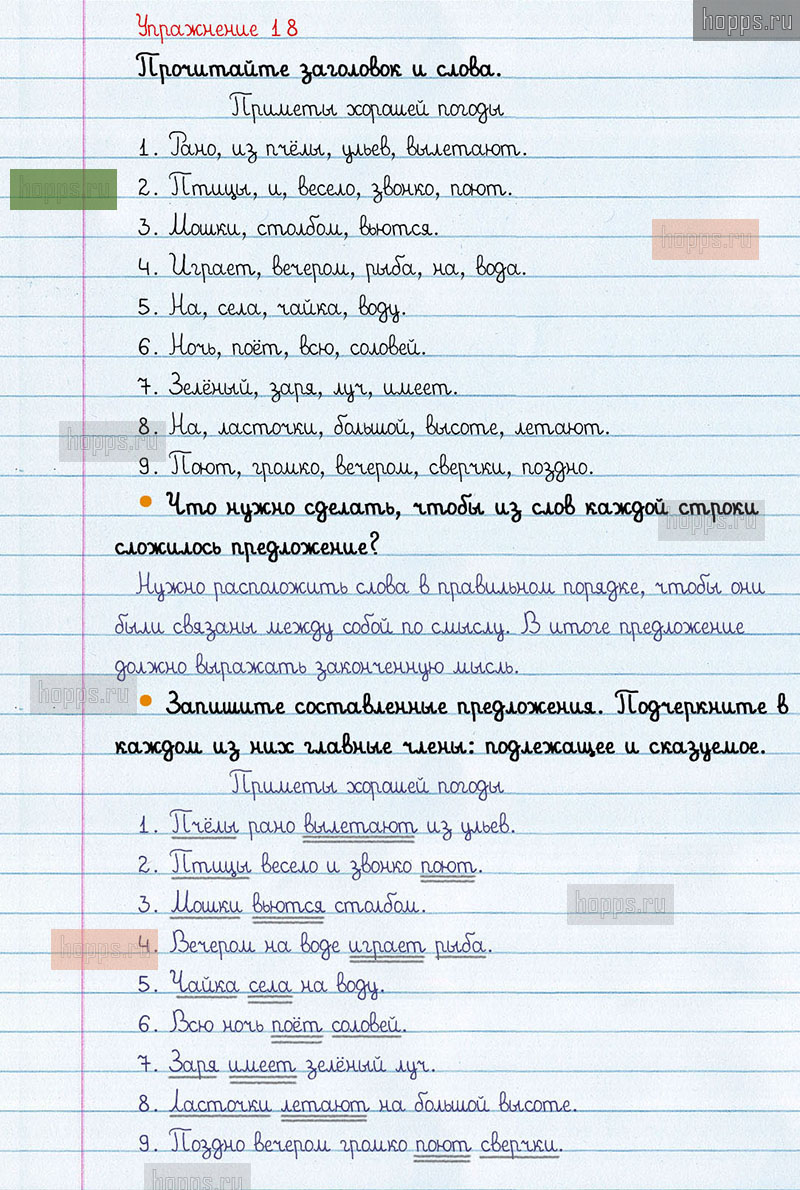 hopps.ru
Упражнение 18
Прочитайте заголовок и слова.
Приметы хорошей погоды
1. Рано, из пчёлы, ульев, вылетают.
hopps.ru
2. Птицы, и, весело, звонко, поют.
3. Мошки, столбом, вьются.
hopps.ru
4. Играет, вечером, рыба, на, вода.
5. На, села, чайка, воду.
6. Ночь, поёт, всю, соловей.
7. Зелёный, заря, луч, имеет.
8. На, ласточки, большой, высоте, летают.
hopps.ru
9. Поют, громко, вечером, сверчки, поздно.
• Что нужно сделать, чтобы из слов каждой строки
hopps.ru
сложилось предложение?
Нужно расположить слова в правильном порядке, чтобы они
были связаны между собой по смыслу. В итоге предложение
должно выражать законченную мысль.
hopps.ru
• Запишите составленные предложения. Подчеркните в
каждом из них главные члены: подлежащее и сказуемое.
Приметы хорошей погоды
1. Пчёлы рано вылетают из ульев.
2. Птицы весело и звонко поют.
3. Мошки вьются столбом.
hopps.ru
4. Вечером на воде играет рыба.
hopps.ru
5. Чайка села на воду.
6. Всю ночь поёт соловей.
7. Заря имеет зелёный луч.
8. Ласточки летают на большой высоте.
9. Поздно вечером громко поют сверчки.
hopps.ru